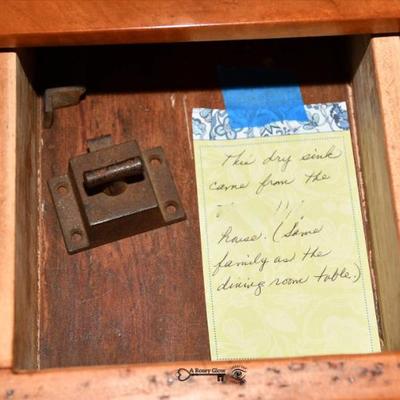 This dry sink
came from the
house. (Same
family as the
dining room table.)
A Rosey Glow